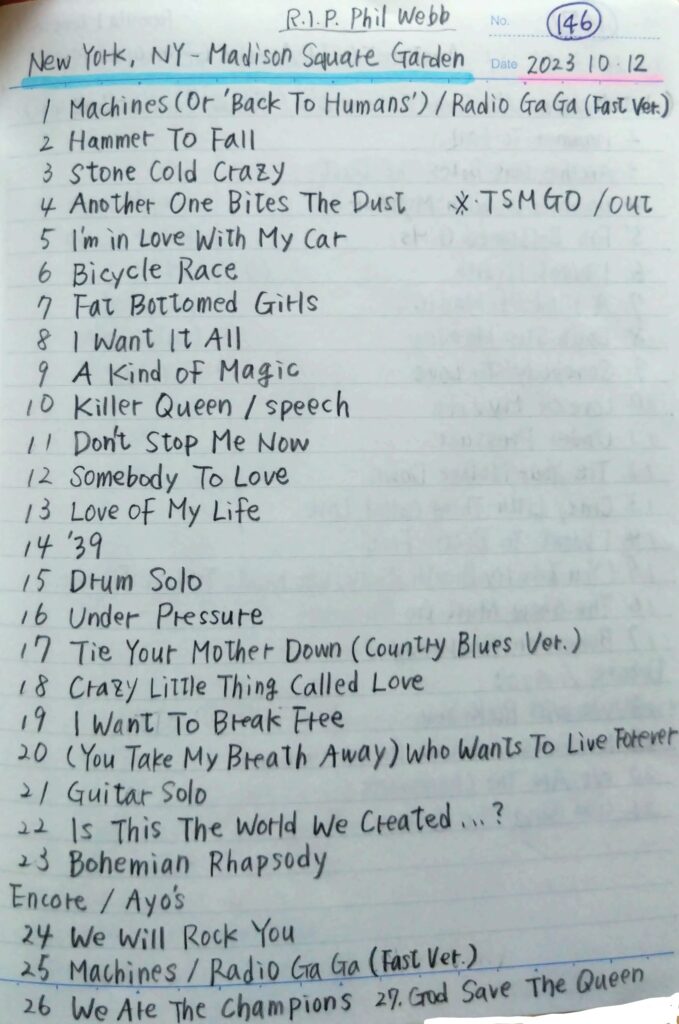 R.I.P. Phil Webb
No. 146
New York, NY - Madison Square Garden
Date 2023 10·12
1 Machines (Or 'Back To Humans') / Radio Ga Ga (Fast Ver.)
2 Hammer To Fall
3 Stone Cold Crazy
4 Another One Bites The Dust ※·TSMGO / out
5 I'm in Love With My Car
6 Bicycle Race
7 Fat Bottomed Girls
8 I Want It All
9 A Kind of Magic
10 Killer Queen / speech
11 Don't Stop Me Now
12 Somebody To Love
13 Love of My Life
14 '39
15 Drum Solo
16 Under Pressure
17 Tie Your Mother Down (Country Blues Ver.)
18 Crazy Little Thing Called Love
19 I Want To Break Free
20 (You Take My Breath Away) Who Wants To Live Forever
21 Guitar Solo
22 Is This The World We Created...?
23 Bohemian Rhapsody
Encore / Ayo's
24 We Will Rock You
25 Machines / Radio Ga Ga (Fast Ver.)
26 We Are The Champions 27. God Save The Queen